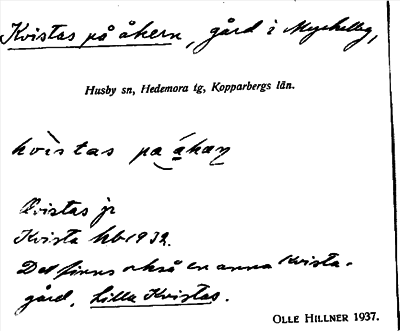 Kvistas på åkern, gård i Myckelby,
Husby sn, Hedemora tg, Kopparbergs län.
kvìstas pa åkaɳ
Kvistas jr
Kvista hb 1932.
Det finns också en anna Kvista-
gård, Lilla Kvistas.
OLLE HILLNER 1937.